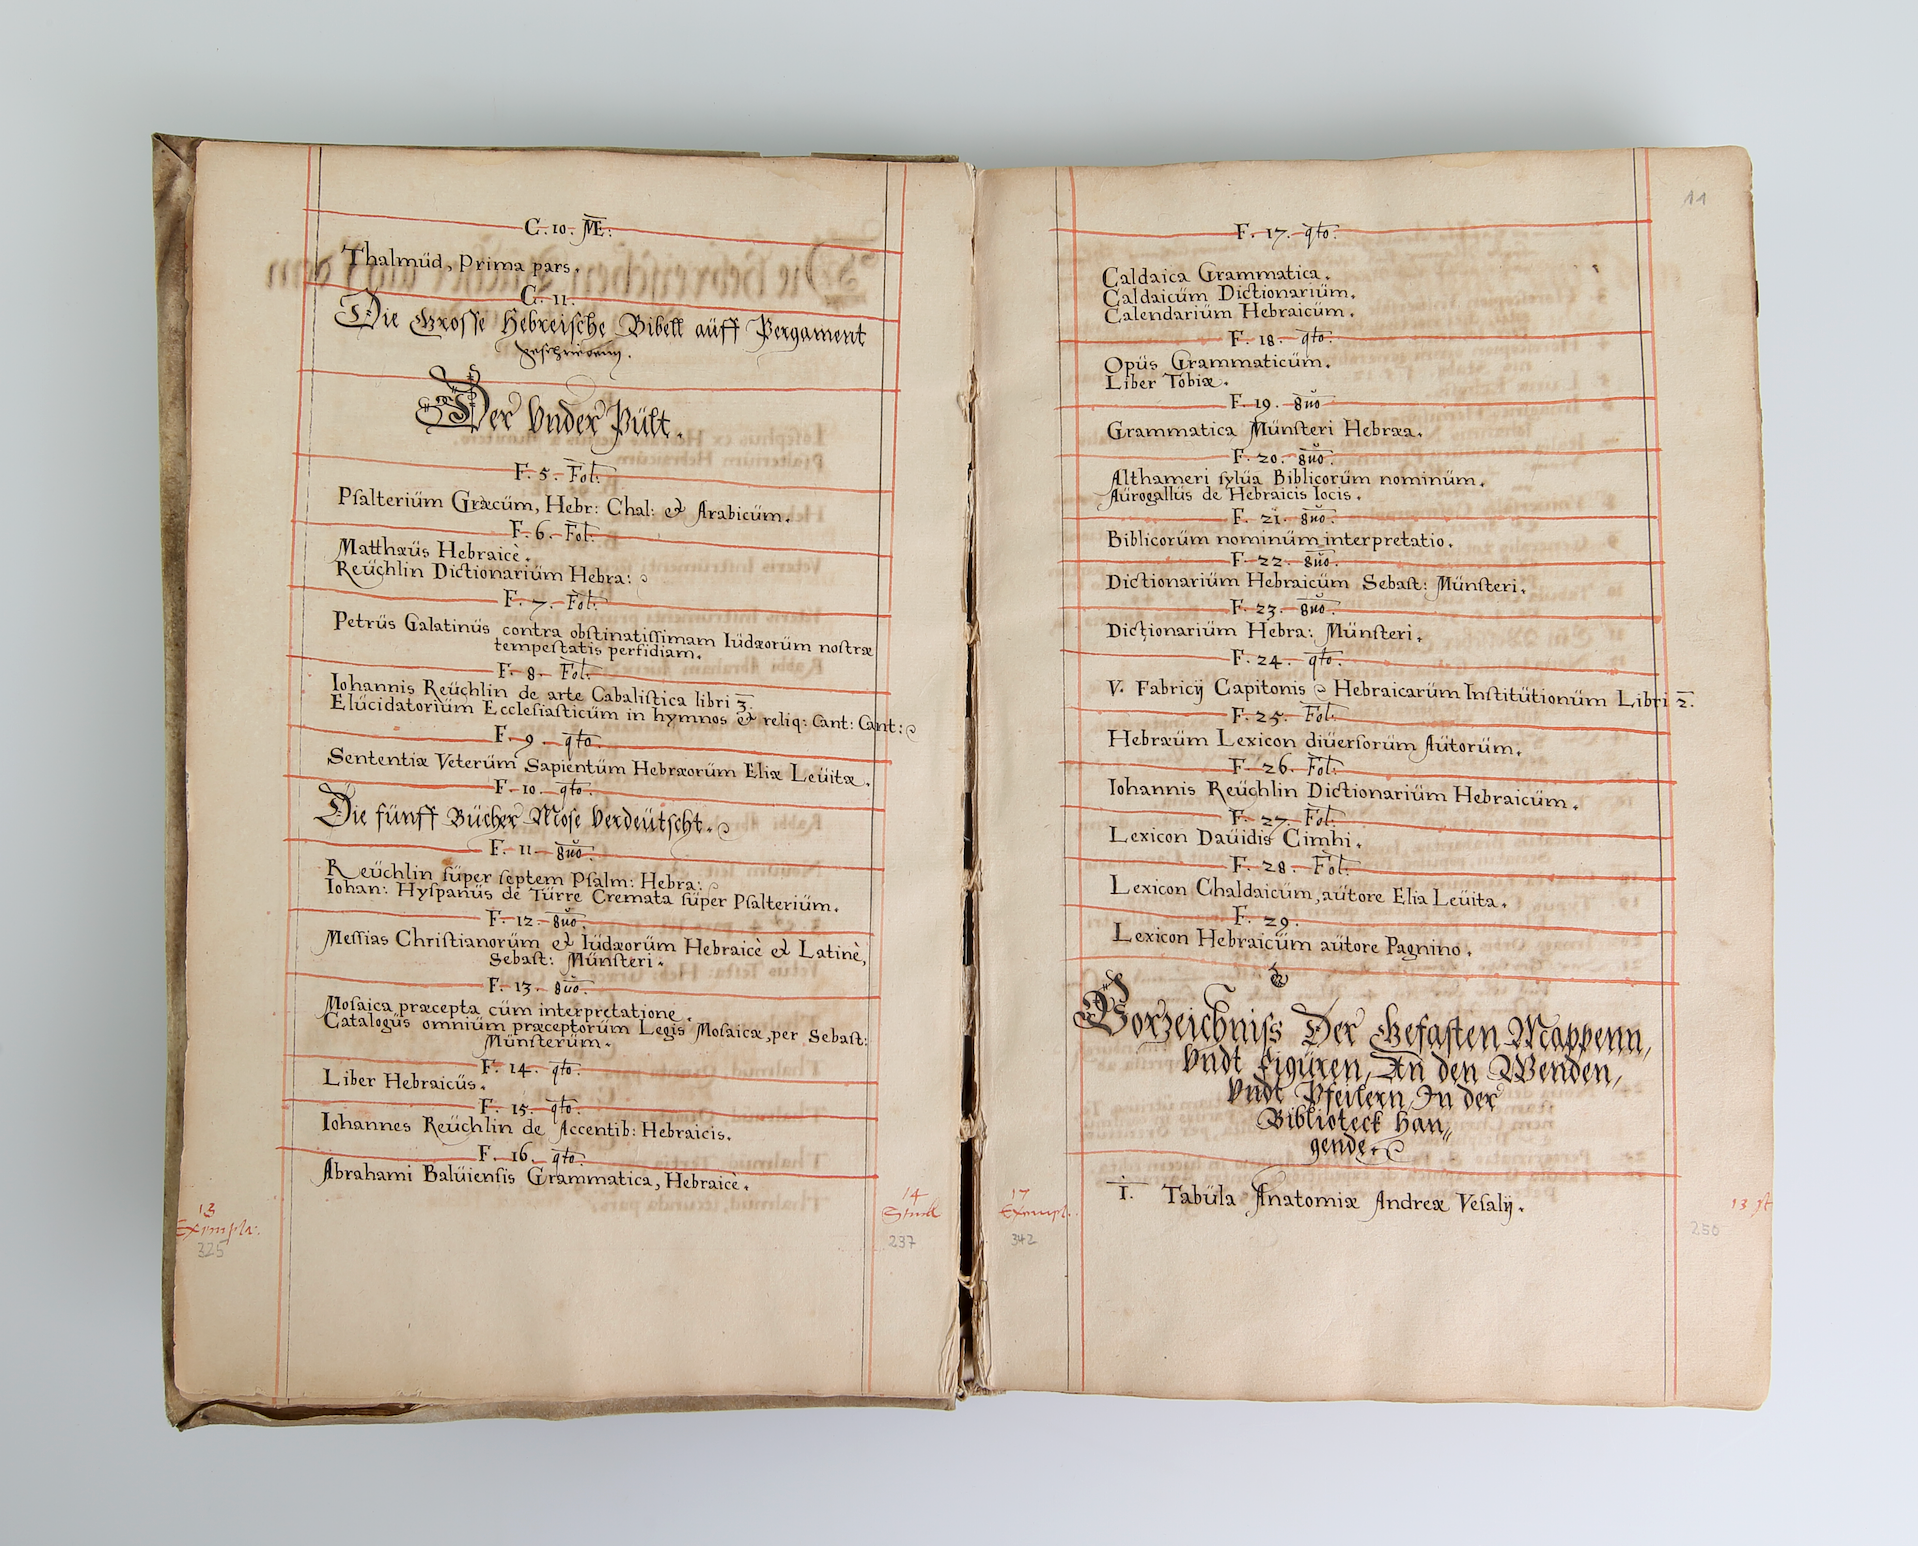 G. 10. Æ:
Thalmüd, Prima pars.
G. 11.
Die Grosse Hebreische Bibell aüff Pergament
geschriebenn.
Der Vnder Pült.
F. 5. Fol:
Pſalteriüm Græcüm, Hebr: Chal: & Arabicüm.
F. 6. Fol:
Matthæüs Hebraicè.
Reüchlin Dictionariüm Hebra:
F. 7. Fol:
Petrüs Galatinüs contra obſtinatiſſimam Iüdæorüm noſtræ
tempeſtatis perfidiam.
F. 8. Fol:
Iohannis Reüchlin de arte Cabaliſtica libri 3.
Elücidatoriüm Eccleſiaſticüm in hymnos & reliq: Cant: Cant:
F. 9. qto.
Sententiæ Veterüm Sapientüm Hebræorüm Eliæ Leüitæ.
F. 10. qto.
Die fünff Bücher Moſe Verdeütſcht.
F. 11. 8uo.
Reüchlin ſüper ſeptem Pſalm: Hebra:
Iohan: Hyſpanüs de Türre Cremata ſüper Pſalteriüm.
F. 12. 8uo.
Meſſias Chriſtianorüm & Iüdæorüm Hebraicè & Latinè,
Sebaſt: Münſteri.
F. 13. 8uo.
Moſaica præcepta cüm interpretatione.
Catalogüs omniüm præceptorüm Legis Moſaicæ, per Sebaſt:
Münſterüm.
F. 14. qto.
Liber Hebraicüs.
F. 15. qto.
Iohannes Reüchlin de Accentib: Hebraicis.
F. 16. qto.
Abrahami Balüienſis Grammatica, Hebraicè.
13
Exempla:
325
14
Stuck
237
11
F. 17. qto.
Caldaica Grammatica.
Caldaicüm Dictionariüm.
Calendariüm Hebraicüm.
F. 18. qto.
Opüs Grammaticüm.
Liber Tobiæ.
F. 19. 8uo
Grammatica Münſteri Hebræa.
F. 20. 8uo.
Althameri ſylüa Biblicorüm nominüm.
Aürogallüs de Hebraicis locis.
F. 21. 8uo.
Biblicorüm nominüm interpretatio.
F. 22. 8uo.
Dictionariüm Hebraicüm Sebaſt: Münſteri.
F. 23. 8uo.
Dictionariüm Hebra: Münſteri.
F. 24. qto.
V. Fabricij Capitonis Hebraicarüm Inſtitütionüm Libri 2.
F. 25. Fol:
Hebræüm Lexicon diüerſorüm Aütorüm.
F. 26. Fol:
Iohannis Reüchlin Dictionariüm Hebraicüm.
F. 27. Fol:
Lexicon Daüidis Cimhi.
F. 28. Fol:
Lexicon Chaldaicüm, aütore Elia Leüita.
F. 29.
Lexicon Hebraicüm aütore Pagnino.
Vorzeichniſs Der Gefaſten Mappenn,
Vndt figüren, An den Wenden,
Vndt Pfeilern, In der
Biblioteck han„
gende.
1. Tabüla Anatomiæ Andreæ Veſalij.
17
Exempl.
342
13 st
250